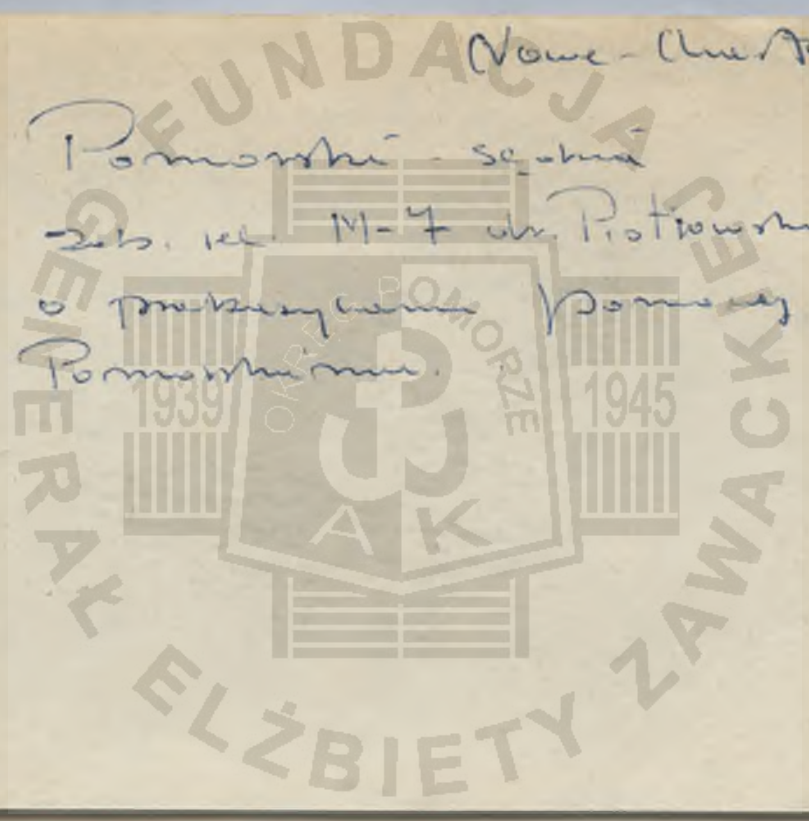 Nowe -
Pomorski - sędzia
zob. rel. M-7 dr. Piotrowski
o przekazywaniu pomocy
Pomorskiemu.
FUNDACJA
GENERAŁ ELŻBIETY ZAWACKIEJ
OKRĘG POMORZE
1939 1945
AK